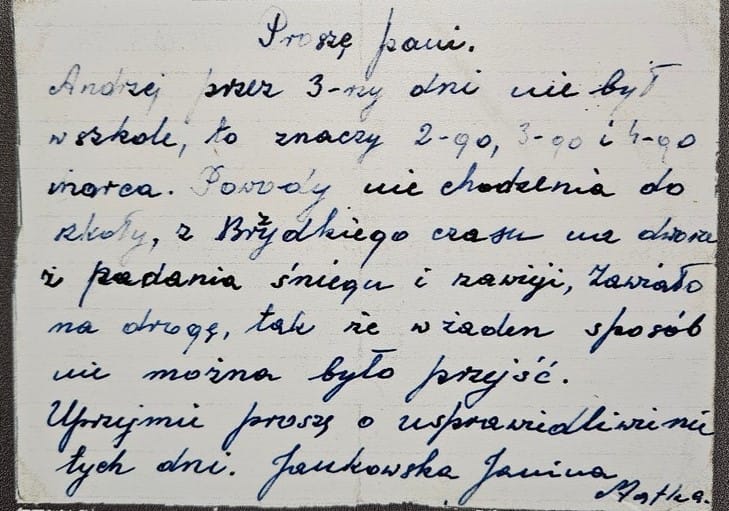 Proszę pani.
Andrzej przez 3-ny dni nie był
w szkole, to znaczy 2-go, 3-go i 4-go
marca. Powody nie chodzenia do
szkoły, z Brżydkiego czasu na dworze
z padania śniegu i zawiji, Zawiało
na drogę, tak że w żaden sposób
nie można było przejść.
Uprzejmie proszę o usprawiedliwienie
tych dni. Jankowska Janina
Matka.